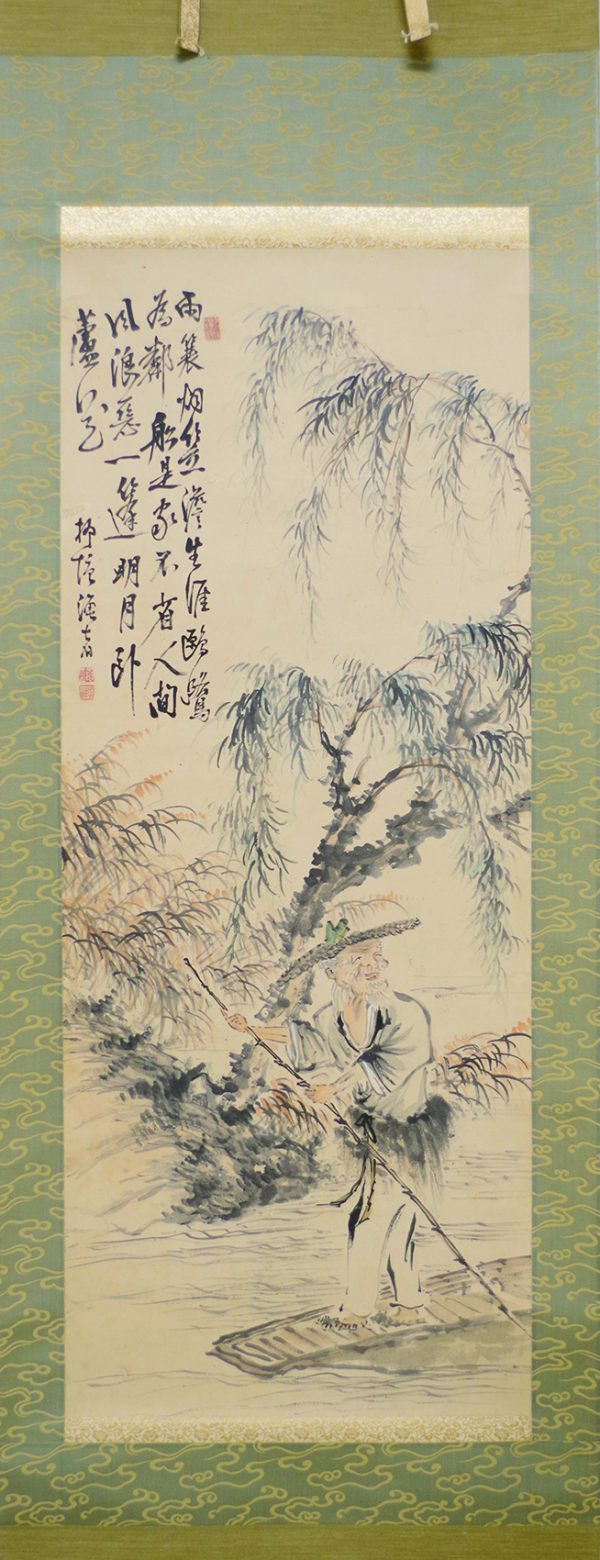 雨蓑烟笠澹生涯鷗鷺
為鄰船是家不省人間
風浪惡一篷明月卧
蘆花